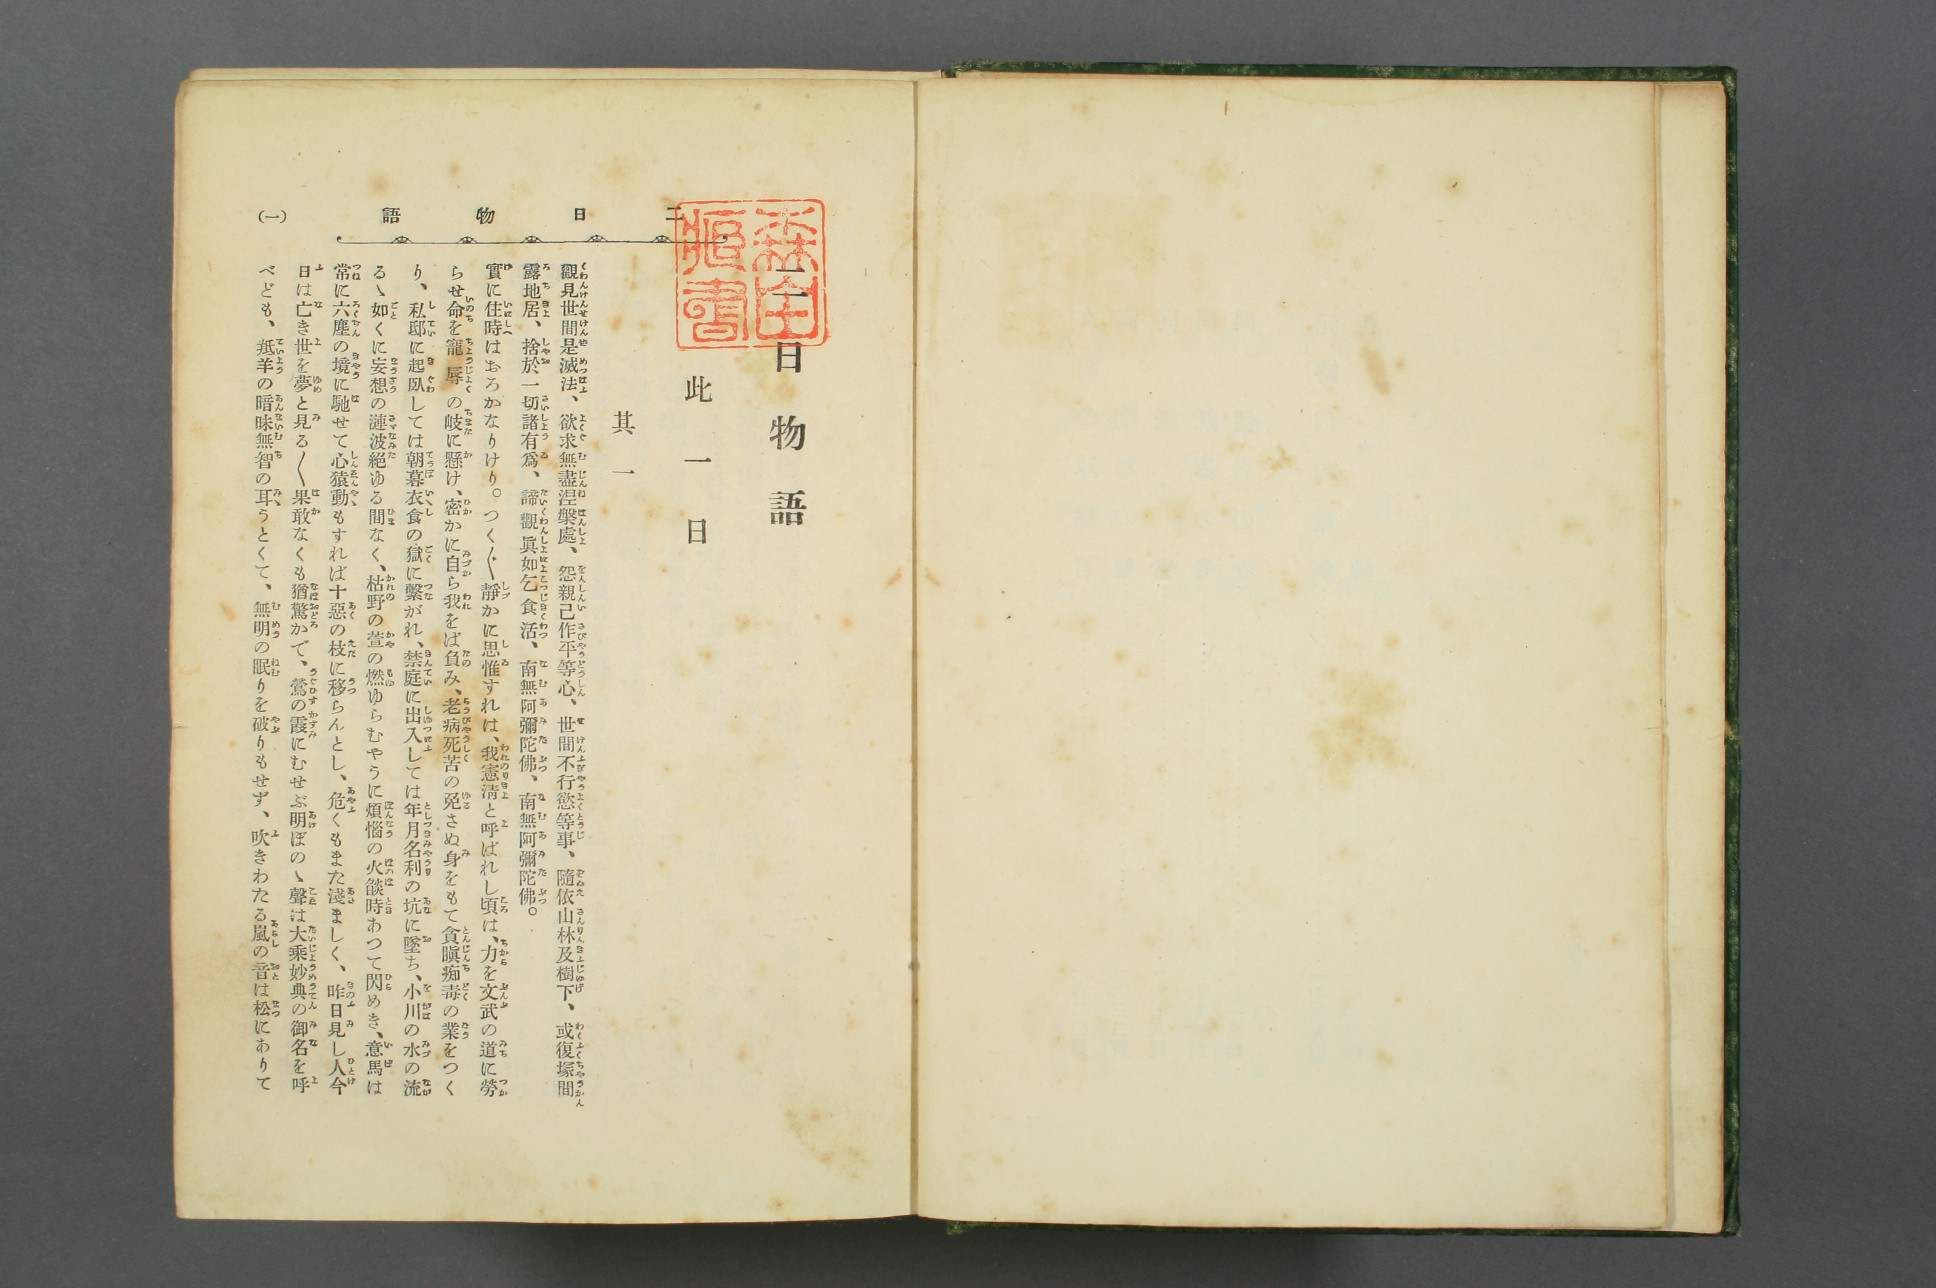 二日物語
(一)
二日物語
此一日
其一
觀見世間是滅法、欲求無盡涅槃處、怨親已作平等心、世間不行慾等事、隨依山林及樹下、或復塚間
露地居、捨於一切諸有爲、諦觀眞如乞食活、南無阿彌陀佛、南無阿彌陀佛。
實に往時はおろかなりけり。つく〲靜かに思惟すれは、我憲淸と呼ばれし頃は、力を文武の道に勞
らせ命を寵辱の岐に懸け、密かに自ら我をば負み、老病死苦の免さぬ身をもて貪瞋痴毒の業をつく
り、私邸に起臥しては朝暮衣食の獄に繫がれ、禁庭に出入しては年月名利の坑に墜ち、小川の水の流
るゝ如くに妄想の漣波絕ゆる間なく、枯野の萱の燃ゆらむやうに煩惱の火燄時あつて閃めき、意馬は
常に六塵の境に馳せて心猿動もすれば十惡の枝に移らんとし、危くもまた淺ましく、昨日見し人今
日は亡き世を夢と見る〱果敢なくも猶驚かで、鶯の霞にむせぶ明ぼのゝ聲は大乘妙典の御名を呼
べども、羝羊の暗昧無智の耳うとくて、無明の眠りを破りもせず、吹きわたる嵐の音は松にありて